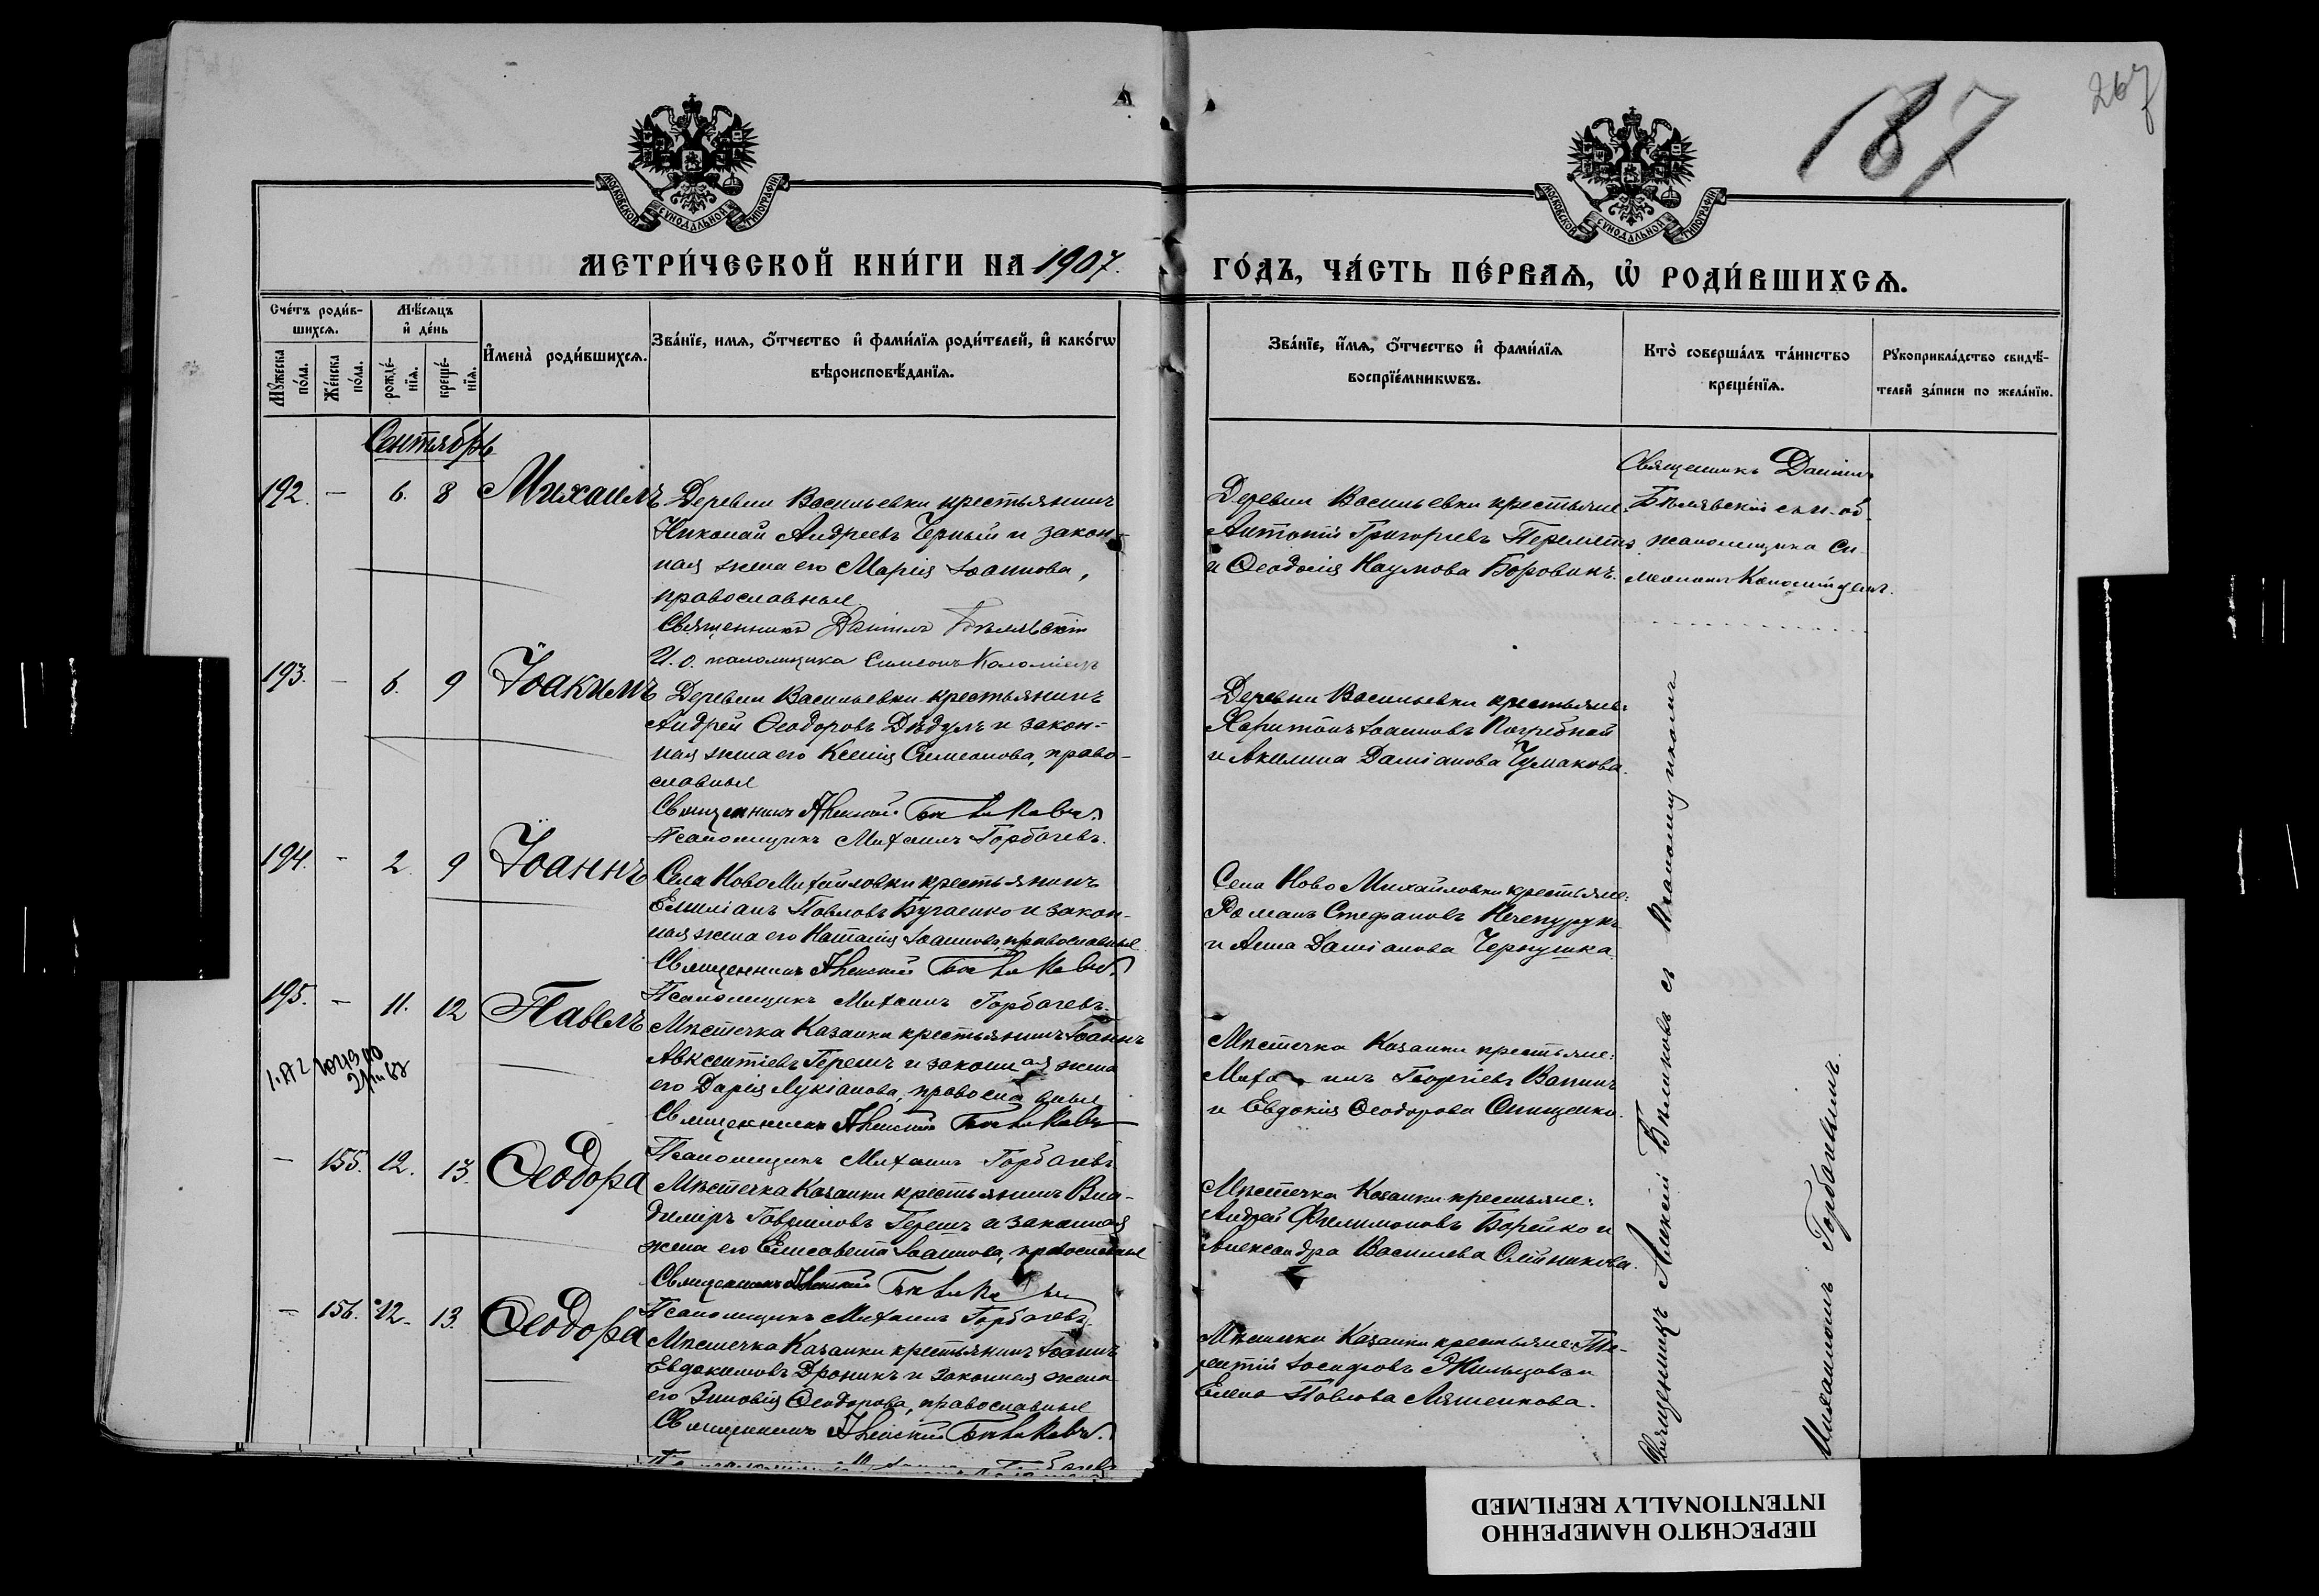 187
267
МОСКОВСКОЙ СУНОДАЛЬНОЙ ТИПОГРАФІИ
МОСКОВСКОЙ СУНОДАЛЬНОЙ ТИПОГРАФІИ
МЕТРИ́ЧЕСКОЙ КНИ́ГИ НА 1907.
ГО́ДЪ, ЧА́СТЬ ПЕ́РВАѦ, Ѡ҆ РОДИ́ВШИХСѦ.
Сче́тъ роди́в-
шихсѧ.
Мꙋ́жеска
по́ла.
Же́нска
по́ла.
Мѣ́сѧцъ
и҆ де́нь
рожде́-
нїѧ.
креще́-
нїѧ.
И҆мена̀ роди́вшихсѧ.
Зва́нїе, имѧ, ѻ҆́тчество и҆ фами́лїѧ роди́телей, и҆ како́гѡ
вѣроисповѣ́данїѧ.
Зва́нїе, и҆́мѧ, ѻ҆́тчество и҆ фами́лїѧ
воспрїе́мникѡвъ.
Кто̀ соверша́лъ та́инство
креще́нїѧ.
Рꙋкоприкла́дство свидѣ́-
телей за́писи по жела́нїю.
Сентябрь
192. — 6. 8 Михаилъ
Деревни Васильевки крестьянинъ
Николай Андреевъ Черный и закон-
ная жена его Марія Іоаннова,
православные
Священникъ Даніилъ Бѣлявскій
И. о. псаломщика Симеонъ Коломіецъ
Деревни Васильевки крестьяне:
Антоній Григорьевъ Перелетъ
и Ѳеодосія Наумова Боровикъ.
Священникъ Даніилъ
Бѣлявскій съ и. об.
псаломщика Си-
меономъ Коломійцемъ.
193. — 6. 9 Іоакимъ
Деревни Васильевки крестьянинъ
Андрей Ѳеодоровъ Дѣдулъ и закон-
ная жена его Ксенія Симеонова, право-
славные
Священникъ Алексій Бѣликовъ.
Псаломщикъ Михаилъ Горбачевъ.
Деревни Васильевки крестьяне:
Харитонъ Іоанновъ Погребной
и Акилина Даміанова Чумакова.
194. — 2. 9 Іоаннъ
Села НовоМихайловки крестьянинъ
Емиліанъ Павловъ Бугаенко и закон-
ная жена его Наталія Іоаннова, православные
Священникъ Алексій Бѣликовъ.
Псаломщикъ Михаилъ Горбачевъ.
Села Ново Михайловки крестьяне:
Романъ Стефановъ Нечепурукъ
и Анна Даміанова Чернушка.
195. — 11. 12 Павелъ
Мѣстечка Казанки крестьянинъ Іоаннъ
Авксентіевъ Герешъ и законная жена
его Дарія Лукіанова, православные
Священникъ Алексій Бѣликовъ
Псаломщикъ Михаилъ Горбачевъ
Мѣстечка Казанки крестьяне:
Михаилъ Георгіевъ Ванинъ
и Евдокія Ѳеодорова Онищенко.
— 155. 12. 13. Ѳеодора
Мѣстечка Казанки крестьянинъ Вла-
диміръ Гавріиловъ Герешъ и законная
жена его Елисавета Іоаннова, православные
Священникъ Алексій Бѣликовъ
Псаломщикъ Михаилъ Горбачевъ
Мѣстечка Казанки крестьяне:
Андрей Филимоновъ Борейко и
Александра Василіева Олійникова.
— 156. 12. 13. Ѳеодора
Мѣстечка Казанки крестьянинъ Іоаннъ
Евдокимовъ Дроникъ и законная жена
его Зиновія Ѳеодорова, православные
Священникъ Алексій Бѣликовъ.
Мѣстечка Казанки крестьяне: Те-
рентій Іосифовъ Жильцовъ и
Елена Павлова Ляшенкова.
Священникъ Алексій Бѣликовъ съ псаломщикомъ
Михаиломъ Горбачевымъ.
ПЕРЕСНЯТО НАМЕРЕННО
INTENTIONALLY REFILMED